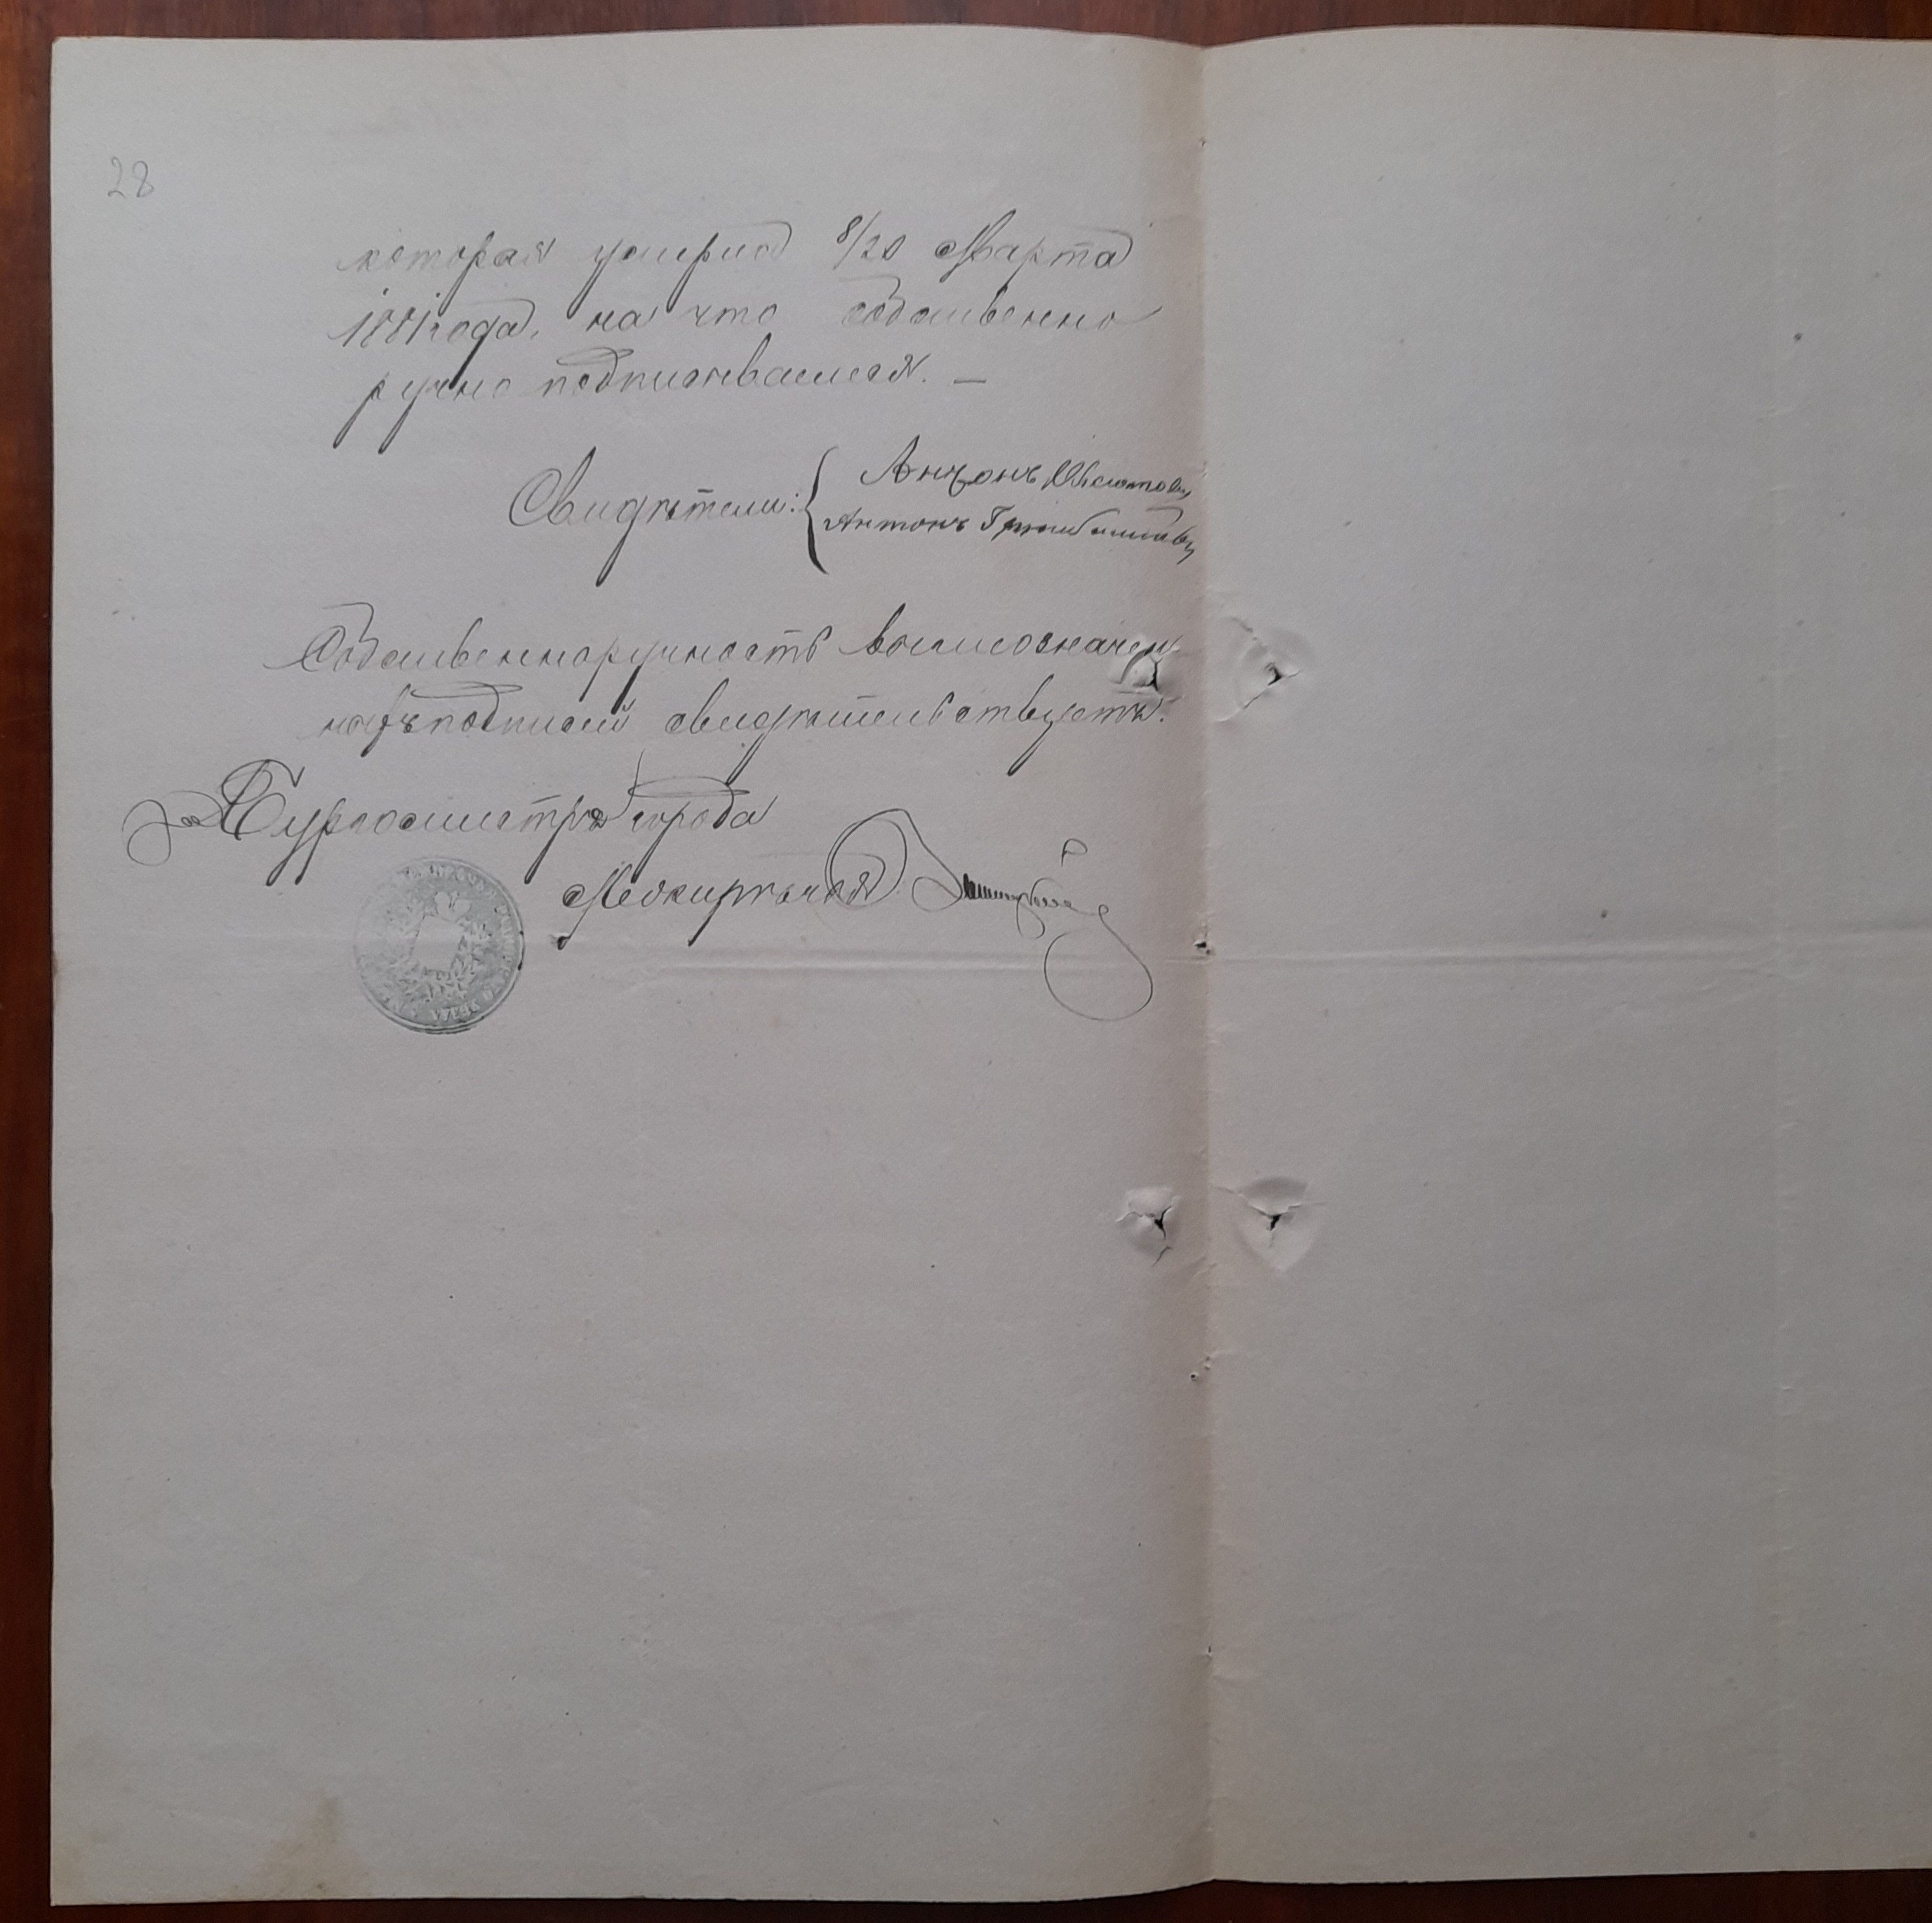 28
которая умерла 8/20 Марта
1881 года, на что собственно
ручно подписываемся. —
Свидѣтели:
Антонъ
Антонъ
Собственноручность вышеозначен
ныхъ подписей свидѣтельствуетъ.
За Бургомистра города